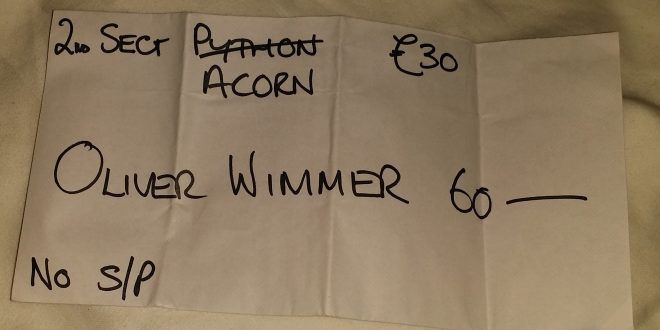 2ND SECT PYTHON £30
ACORN
OLIVER WIMMER 60 —
NO S/P